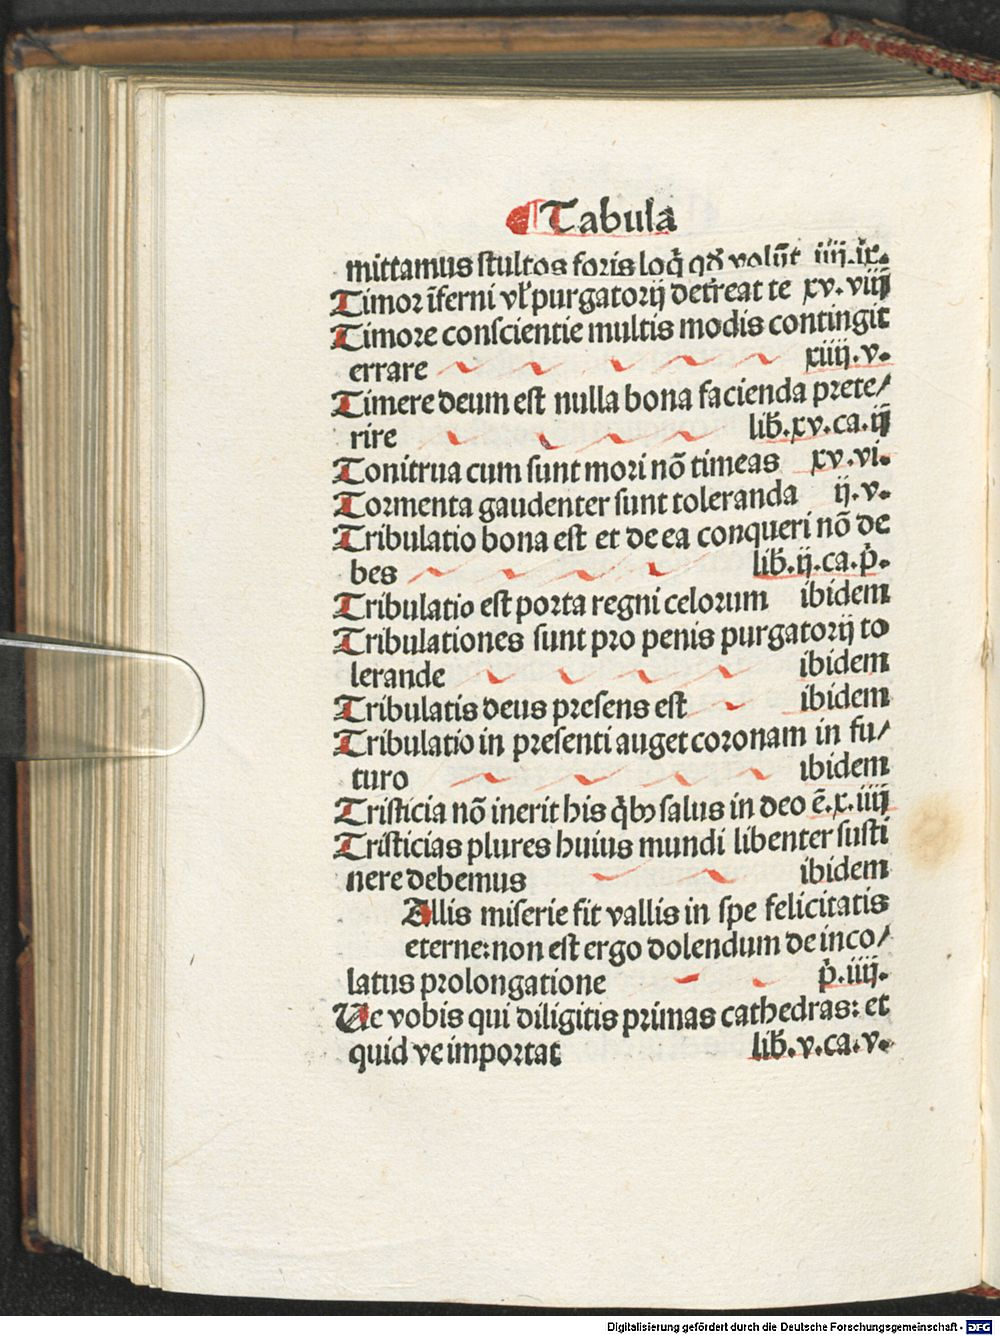 Tabula
mittamus stultos foris loq̄ qđ volūt iiij.ix.
Timor īferni vľ purgatorij detr̄eat te xv.viij
Timore conscientie multis modis contingit
errare xiiij.v.
Timere deum est nulla bona facienda prete/
rire lib̄.xv.ca.ij
Tonitrua cum sunt mori nō timeas xv.vi.
Tormenta gaudenter sunt toleranda ij.v.
Tribulatio bona est et de ea conqueri nō de
bes lib̄.ij.ca.p̄.
Tribulatio est porta regni celorum ibidem
Tribulationes sunt pro penis purgatorij to
lerande ibidem
Tribulatis deus presens est ibidem
Tribulatio in presenti auget coronam in fu/
turo ibidem
Tristicia nō inerit his q̄bꝫ salus in deo ē.x.iiij
Tristicias plures huius mundi libenter susti
nere debemus ibidem
Allis miserie fit vallis in spe felicitatis
eterne:non est ergo dolendum de inco/
latus prolongatione p̄.iiij.
Ue vobis qui diligitis primas cathedras: et
quid ve importat lib̄.v.ca.v.
Digitalisierung gefördert durch die Deutsche Forschungsgemeinschaft - DFG